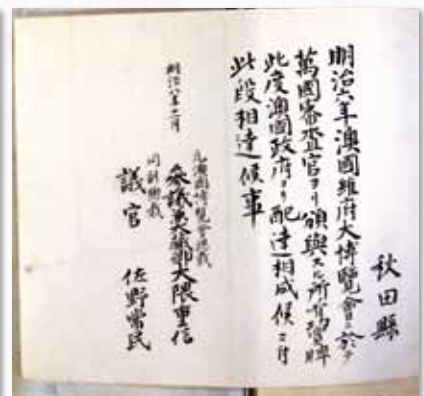 秋田縣
明治六年澳國維府大博覽會ニ於テ
萬國審査官ヨリ領與スル所ノ賞牌
此度澳國政府ヨリ配達相成候ニ付
此段相達候事
明治八年二月
元澳國博覽會總裁
参議兼大藏卿大隈重信
同副總裁
議官 佐野常民